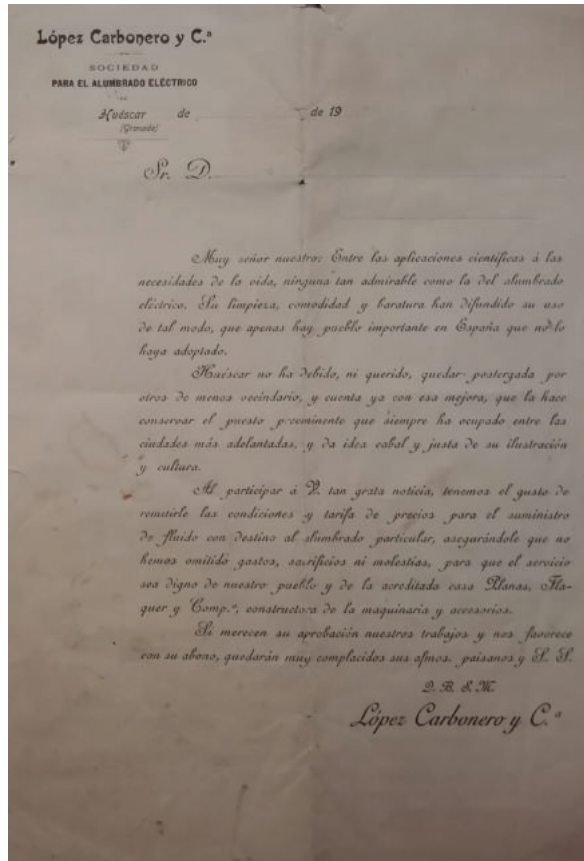 López Carbonero y C.ª
SOCIEDAD
PARA EL ALUMBRADO ELÉCTRICO
Huéscar de de 19
(Granada)
Sr. D.
Muy señor nuestro: Entre las aplicaciones científicas á las
necesidades de la vida, ninguna tan admirable como la del alumbrado
eléctrico. Su limpieza, comodidad y baratura han difundido su uso
de tal modo, que apenas hay pueblo importante en España que no lo
haya adoptado.
Huéscar no ha debido, ni querido, quedar postergada por
otros de menos vecindario, y cuenta ya con esa mejora, que la hace
conservar el puesto preeminente que siempre ha ocupado entre las
ciudades más adelantadas, y da idea cabal y justa de su ilustración
y cultura.
Al participar á V. tan grata noticia, tenemos el gusto de
remitirle las condiciones y tarifa de precios para el suministro
de fluido con destino al alumbrado particular, asegurándole que no
hemos omitido gastos, sacrificios ni molestias, para que el servicio
sea digno de nuestro pueblo y de la acreditada casa Planas, Fla-
quer y Comp.ª, constructora de la maquinaria y accesorios.
Si merecen su aprobación nuestros trabajos y nos favorece
con su abono, quedarán muy complacidos sus afmos. paisanos y S. S.
Q. B. S. M.
López Carbonero y C.ª